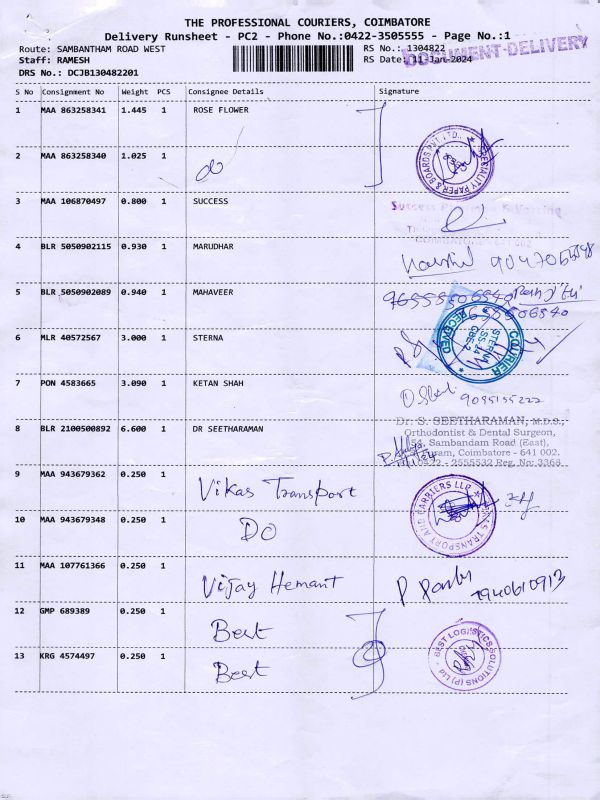 THE PROFESSIONAL COURIERS, COIMBATORE
Delivery Runsheet - PC2 - Phone No.:0422-3505555 - Page No.:1
Route: SAMBANTHAM ROAD WEST
RS No.: 1304822
DOCUMENT-DELIVERY
Staff: RAMESH
RS Date: 11-Jan-2024
DRS No.: DCJB130482201
S No Consignment No Weight PCS Consignee Details Signature
1 MAA 863258341 1.445 1 ROSE FLOWER
2 MAA 863258340 1.025 1
SPECIALITY PAPER & BOARDS PVT. LTD.
3 MAA 106870497 0.800 1 SUCCESS
Success
4 BLR 5050902115 0.930 1 MARUDHAR
5 BLR 5050902089 0.940 1 MAHAVEER
6 MLR 40572567 3.000 1 STERNA
COURIER RECEIVED
7 PON 4583665 3.090 1 KETAN SHAH
9095155222
8 BLR 2100500892 6.600 1 DR SEETHARAMAN
Dr. S. SEETHARAMAN, M.D.S.,
Orthodontist & Dental Surgeon,
Sambandam Road (East),
Coimbatore - 641 002.
0422 - 2555532 Reg. No: 3368
9 MAA 943679362 0.250 1 Vikas Transport
10 MAA 943679348 0.250 1 DO
11 MAA 107761366 0.250 1 Vijay Hemant
7940610913
12 GMP 689389 0.250 1 Best
13 KRG 4574497 0.250 1 Best
BEST LOGISTICS SOLUTIONS (P) Ltd